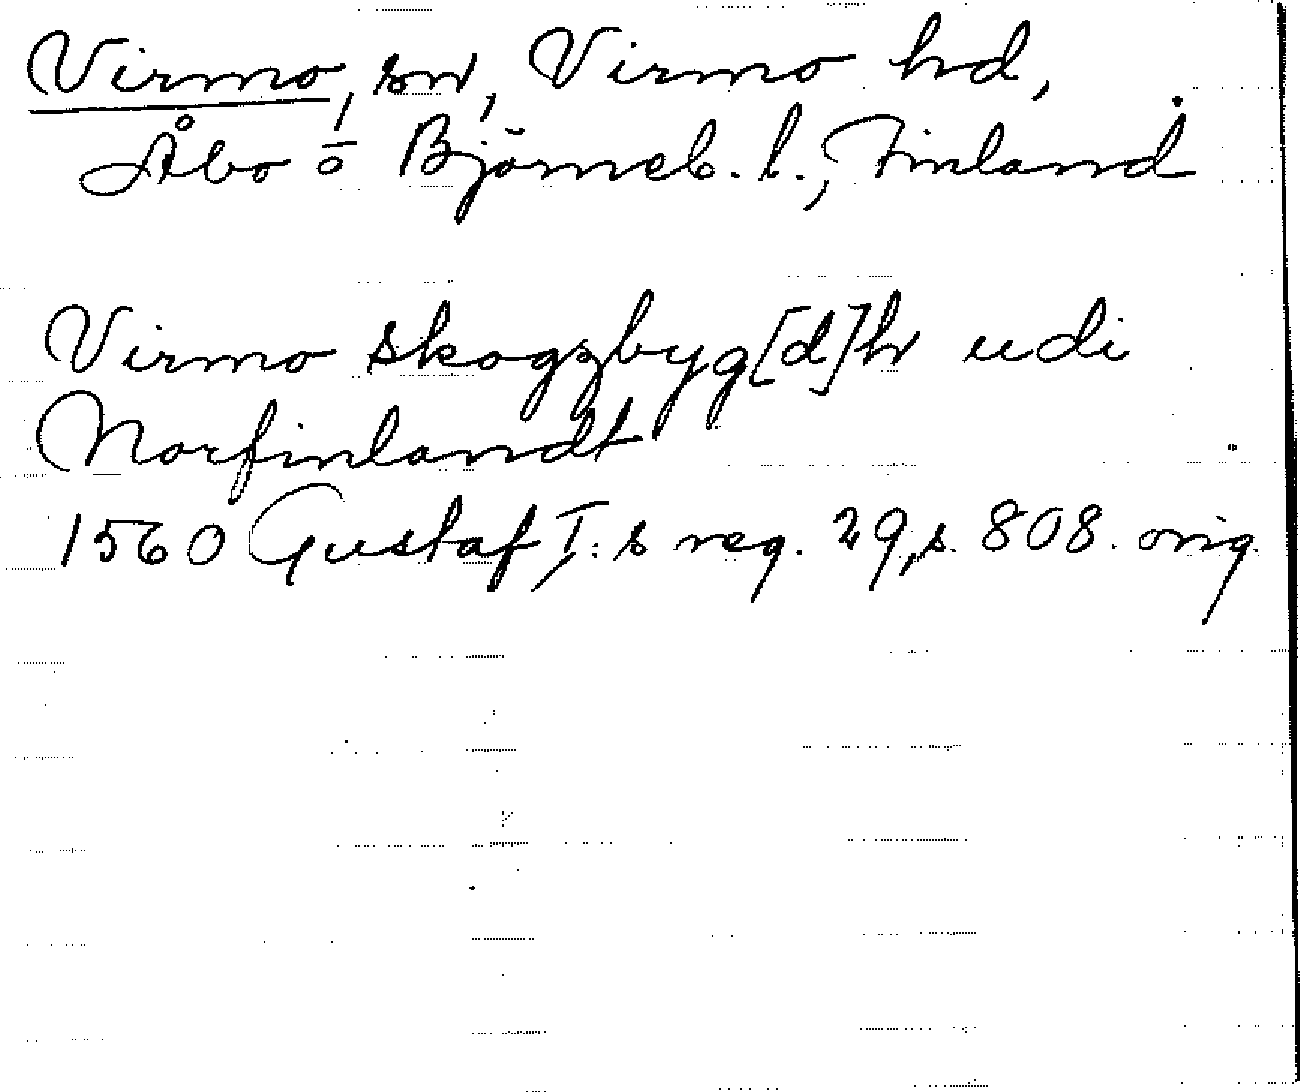 Virmo, sn, Virmo hd,
Åbo o Björneb. l., Finland
Virmo skogzbyg[d]h udi
Norfinlandt
1560 Gustaf I:s reg. 29, s. 808. orig.